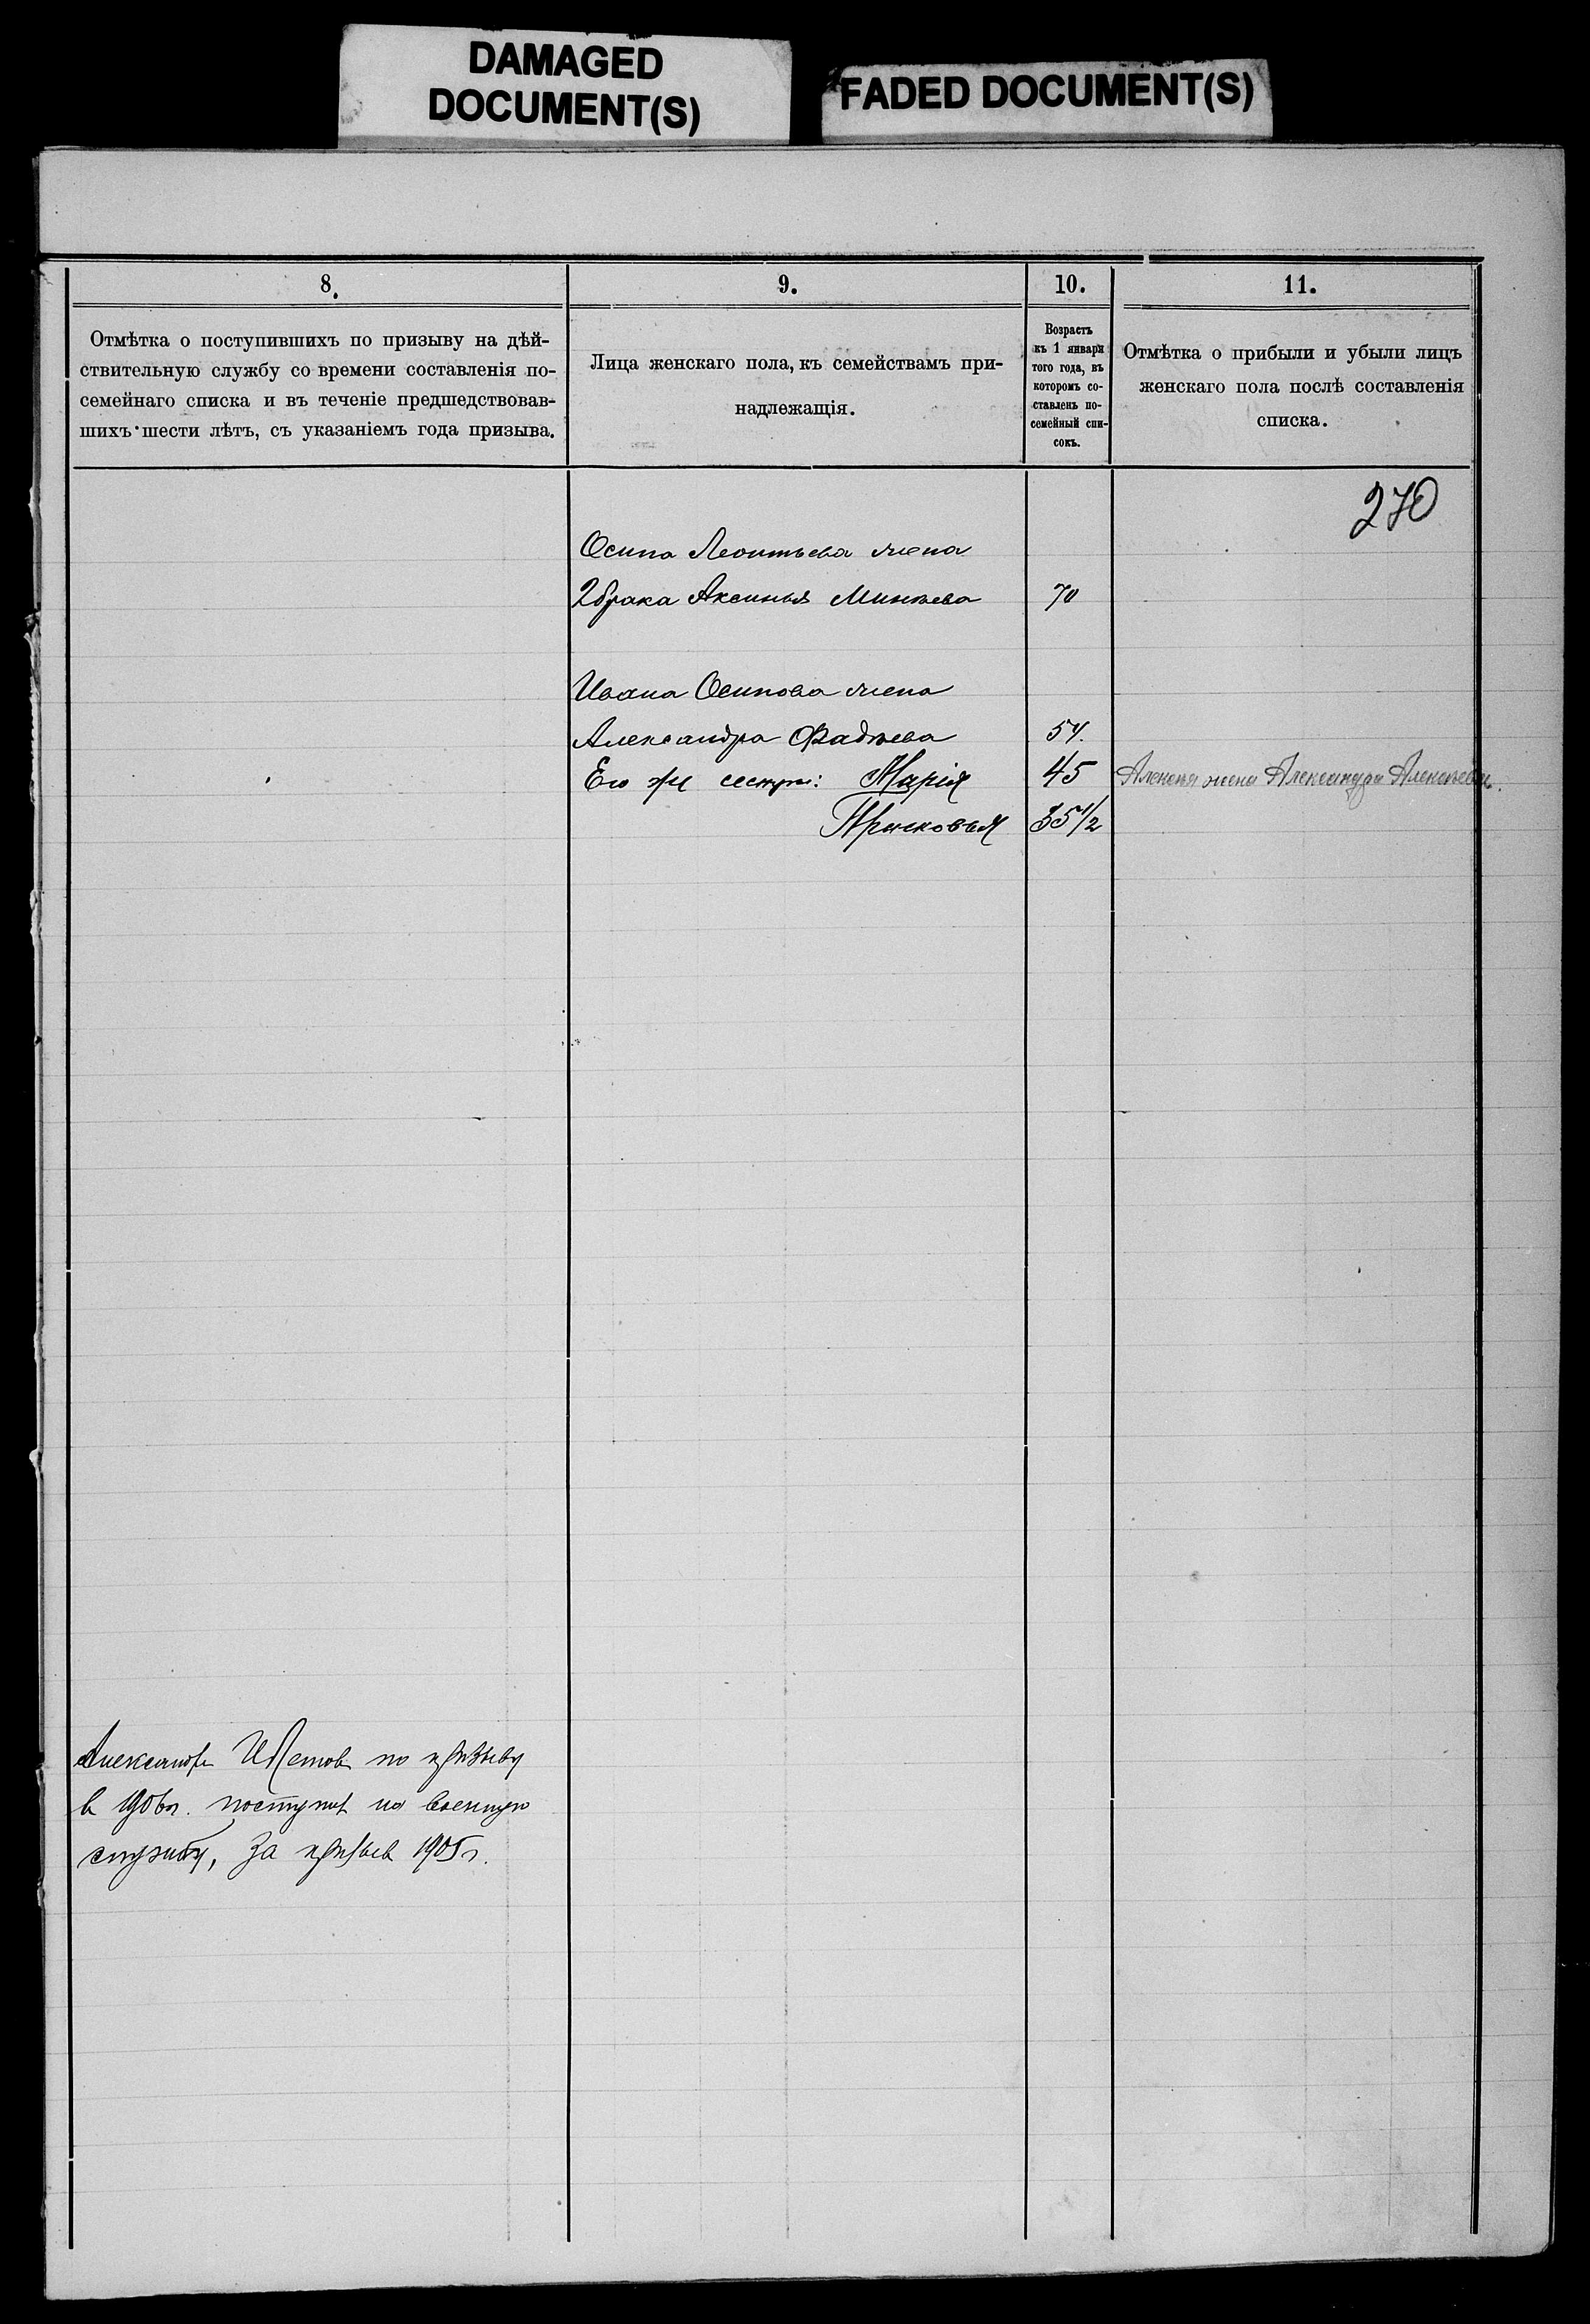 DAMAGED
DOCUMENT(S)
FADED DOCUMENT(S)
8.
Отмѣтка о поступившихъ по призыву на дѣй-
ствительную службу со времени составленія по-
семейнаго списка и въ теченіе предшедствовав-
шихъ шести лѣтъ, съ указаніемъ года призыва.
9.
Лица женскаго пола, къ семействамъ при-
надлежащія.
10.
Возрастъ
къ 1 января
того года, въ
которомъ со-
ставленъ по-
семейный спи-
сокъ.
11.
Отмѣтка о прибыли и убыли лицъ
женскаго пола послѣ составленія
списка.
270
Осипа Леонтьева жена
2 брака Аксинья Минѣева 70
Ивана Осипова жена
Александра Фадѣева 54.
Его же сестры: Марія 45 Алексѣя жена Александра Алексѣева.
Прасковья 35 1/2
Александръ по призыву
в 1906 г. поступил на военную
службу, За призыв 1905 г.